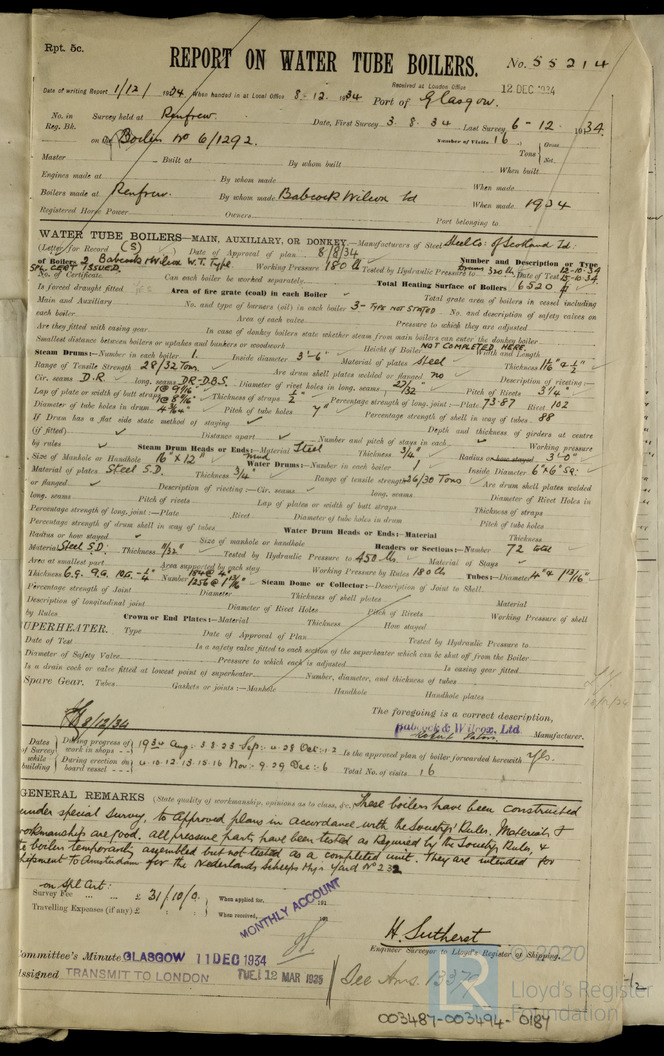 Rpt. 5c.
REPORT ON WATER TUBE BOILERS.
No. 55214
Received at London Office 12 DEC 1934
Date of writing Report 1/12/ 1934 When handed in at Local Office 8.12.1934 Port of Glasgow.
No. in Reg. Bk. Survey held at Renfrew. Date, First Survey 3.8.34 Last Survey 6-12. 1934.
on the Boiler No 6/1292. Number of Visits 16
Tons Gross Net.
Master Built at By whom built When built
Engines made at By whom made When made
Boilers made at Renfrew. By whom made Babcock Wilcox Ld When made 1934
Registered Horse Power Owners Port belonging to
WATER TUBE BOILERS—MAIN, AUXILIARY, OR DONKEY.—Manufacturers of Steel Steel Co: of Scotland Ld:
(Letter for Record (S) Date of Approval of plan 8/8/34 Number and Description or Type
of Boilers 2 Babcock & Wilcox W.T. Type. Working Pressure 180 lb Tested by Hydraulic Pressure to 320 lb Date of Test 12-10-34 15-10-34
SPL. CERT ISSUED.
No. of Certificate. Can each boiler be worked separately Total Heating Surface of Boilers 6520
Is forced draught fitted Area of fire grate (coal) in each Boiler Total grate area of boilers in vessel including
Main and Auxiliary No. and type of burners (oil) in each boiler 3 - TYPE NOT STATED No. and description of safety valves on
each boiler Area of each valve Pressure to which they are adjusted
Are they fitted with easing gear In case of donkey boilers state whether steam from main boilers can enter the donkey boiler
Smallest distance between boilers or uptakes and bunkers or woodwork Height of Boiler NOT COMPLETED HERE Width and Length
Steam Drums:—Number in each boiler 1. Inside diameter 3'-6" Material of plates Steel Thickness 1 1/16" & 1/2"
Range of Tensile Strength 28/32 Tons. Are drum shell plates welded or flanged no Description of riveting:—
Cir. seams D.R long. seams DR-DBS Diameter of rivet holes in long. seams 27/32 Pitch of Rivets 3 1/4"
Lap of plate or width of butt straps 1 @ 9 1/16" 1 @ 8 9/16" Thickness of straps 1/2" Percentage strength of long. joint:—Plate 73.87 Rivet 102
Diameter of tube holes in drum 4 3/64" Pitch of tube holes 7" Percentage strength of shell in way of tubes 88
If Drum has a flat side state method of staying Depth and thickness of girders at centre
(if fitted) Distance apart Number and pitch of stays in each Working pressure
by rules Steam Drum Heads or Ends:—Material Steel Thickness 3/4" Radius or how stayed 3'-0"
Size of Manhole or Handhole 16" x 12" Water Drums:—Number in each boiler 1 Inside Diameter 6"x6" Sq:
Material of plates Steel S.D. Thickness 3/4" Range of tensile strength 26/30 Tons Are drum shell plates welded
or flanged Description of riveting:—Cir. seams long. seams Diameter of Rivet Holes in
long. seams Pitch of rivets Lap of plates or width of butt straps Thickness of straps
Percentage strength of long. joint:—Plate Rivet Diameter of tube holes in drum Pitch of tube holes
Percentage strength of drum shell in way of tubes Water Drum Heads or Ends:—Material Thickness
Radius or how stayed Size of manhole or handhole Headers or Sections:—Number 72 total
Material Steel S.D. Thickness 11/32" Tested by Hydraulic Pressure to 450 lbs. Material of Stays
Area at smallest part Area supported by each stay Working Pressure by Rules 180 lb Tubes:—Diameter 4" & 1 13/16"
Thickness 6.g. 9.G. Number 184 @ 4" 1256 @ 1 13/16" Steam Dome or Collector:—Description of Joint to Shell
Percentage strength of Joint Diameter Thickness of shell plates Material
Description of longitudinal joint Diameter of Rivet Holes Pitch of Rivets Working Pressure of shell
by Rules Crown or End Plates:—Material Thickness How stayed
SUPERHEATER. Type Date of Approval of Plan Tested by Hydraulic Pressure to
Date of Test Is a safety valve fitted to each section of the superheater which can be shut off from the Boiler
Diameter of Safety Valve Pressure to which each is adjusted Is easing gear fitted
Is a drain cock or valve fitted at lowest point of superheater Number, diameter, and thickness of tubes
Spare Gear. Tubes Gaskets or joints:—Manhole Handhole Handhole plates
The foregoing is a correct description,
Babcock & Wilcox, Ltd
8/12/34 Manufacturer.
Dates of Survey while building
During progress of work in shops 1934 Aug: 3.8.23 Sept: 4.28 Oct: 1.2 Is the approved plan of boiler forwarded herewith Yes.
During erection on board vessel 4.10.12.13.15.16 Nov: 9.29 Dec: 6 Total No. of visits 16
GENERAL REMARKS (State quality of workmanship, opinions as to class, &c. These boilers have been constructed
under special survey, to approved plans in accordance with the Society's Rules. Materials &
workmanship are good, all pressure parts have been tested as required by the Society's Rules, &
the boilers temporarily assembled but not tested as a completed unit. They are intended for
shipment to Amsterdam for the Nederlands Scheeps Mij. Yard No 232
on Spl Cert:
Survey Fee £ 31/10/0. When applied for, 191
Travelling Expenses (if any) £ When received, 191
MONTHLY ACCOUNT
H. Sutherst
Engineer Surveyor to Lloyd's Register of Shipping.
Committee's Minute GLASGOW 11 DEC 1934
Assigned TRANSMIT TO LONDON TUE. 12 MAR 1935
See Ams. 1337
LR © 2020
Lloyd's Register
Foundation
003487-003494-0187